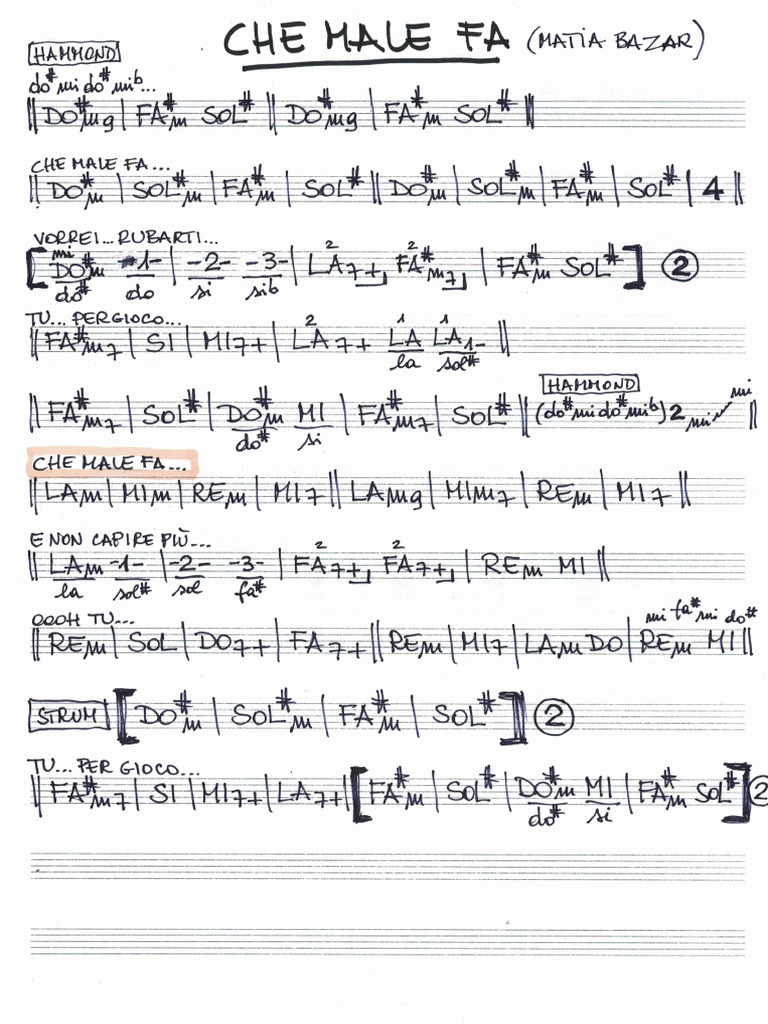 CHE MALE FA (MATIA BAZAR)
HAMMOND
do# mi do# mib...
|| DO#m9 | FA#m SOL# || DO#m9 | FA#m SOL# ||
CHE MALE FA...
|| DO#m | SOL#m | FA#m | SOL# || DO#m | SOL#m | FA#m | SOL# | 4 ||
VORREI... RUBARTI...
mi 2 2
[ DO#m -1- | -2- -3- | LA7+ FA#m7 | FA#m SOL# ] 2
do# do si sib
TU... PER GIOCO...
2 1 1
|| FA#m7 | SI | MI7+ | LA7+ LA LA1- ||
la sol#
HAMMOND
|| FA#m7 | SOL# | DO#m MI | FA#m7 | SOL# || (do# mi do# mib) 2 mi mi
do# si
CHE MALE FA...
|| LAm | MIm | REm | MI7 || LAm9 | MIm7 | REm | MI7 ||
E NON CAPIRE PIÙ...
2 2
|| LAm -1- | -2- -3- | FA7+ FA7+ | REm MI ||
la sol# sol fa#
OOOH TU... mi fa# mi do#
|| REm | SOL | DO7+ | FA7+ || REm | MI7 | LAm DO | REm MI ||
STRUM [ DO#m | SOL#m | FA#m | SOL# ] 2
TU... PER GIOCO...
|| FA#m7 | SI | MI7+ | LA7+ | [ FA#m | SOL# | DO#m MI | FA#m SOL# ] 2
do# si